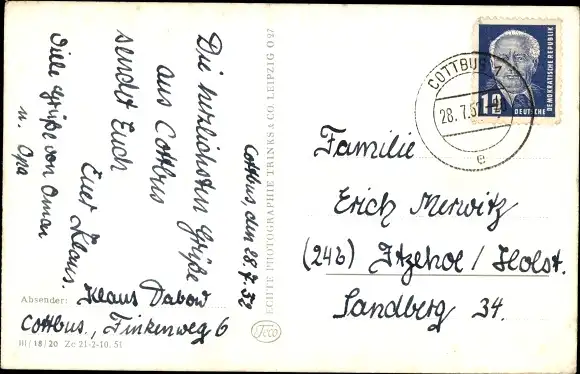 Cottbus, den 28.7.52
Die herzlichsten Grüße
aus Cottbus
sendet Euch
Euer Klaus.
Viele Grüße von Oma
u. Opa
Absender: Klaus Dabow
Cottbus., Finkenweg 6
III/18/20 Ze 21-2-10. 51
ECHTE PHOTOGRAPHIE TRINKS & CO. LEIPZIG O 27
Trico
COTTBUS 7
28.7.52
e
12
DEUTSCHE
DEMOKRATISCHE REPUBLIK
Familie
Erich Merwitz
(24b) Itzehoe / Holst.
Sandberg 34.